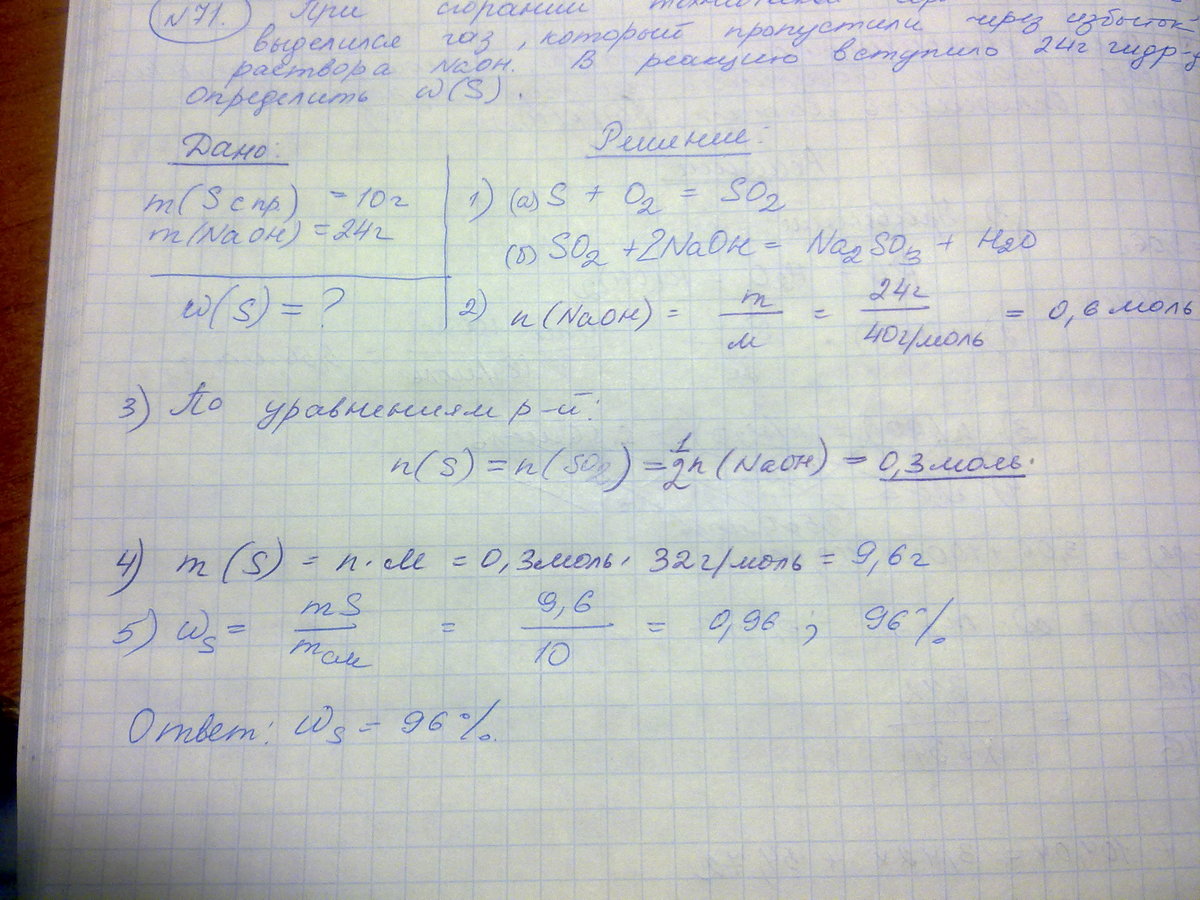 №71. При сгорании технической
выделился газ, который пропустили через избыток
раствора NaOH. В реакцию вступило 24г гидр-д
Определить ω(S).
Дано:
m(S с пр.) = 10г
m(NaOH) = 24г
ω(S) = ?
Решение:
1) (а) S + O₂ = SO₂
(б) SO₂ + 2NaOH = Na₂SO₃ + H₂O
2) n(NaOH) = m/M = 24г/40г/моль = 0,6 моль
3) По уравнениям р-й:
n(S) = n(SO₂) = 1/2 n(NaOH) = 0,3 моль.
4) m(S) = n·M = 0,3моль · 32г/моль = 9,6г
5) ωS = mS/mсм = 9,6/10 = 0,96 ; 96%
Ответ: ωS = 96%.